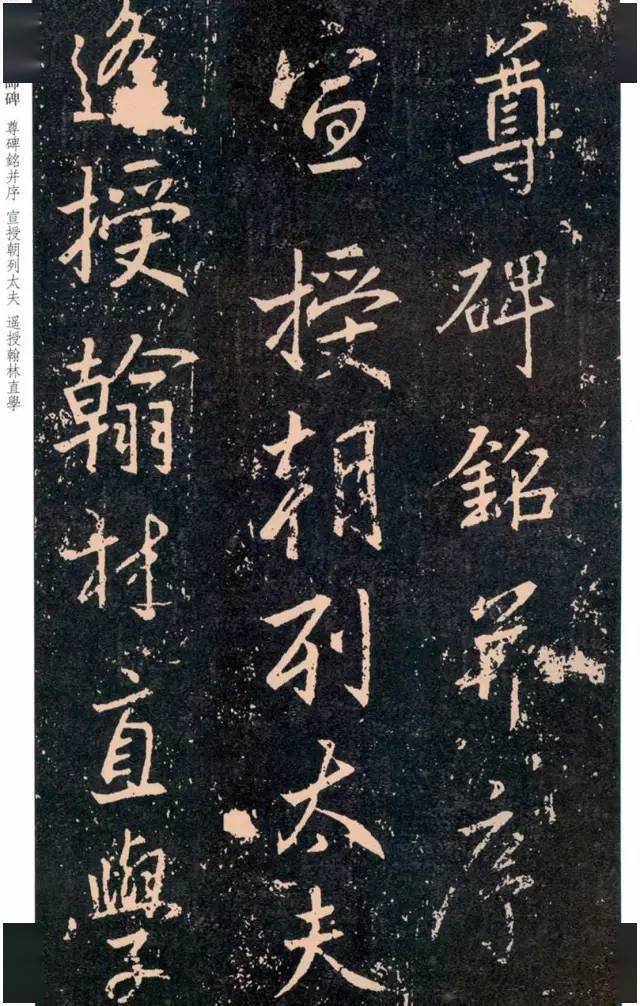 尊碑銘并序
宣授朝列太夫
遙授翰林直學
碑 尊碑銘并序 宣授朝列太夫 遥授翰林直學